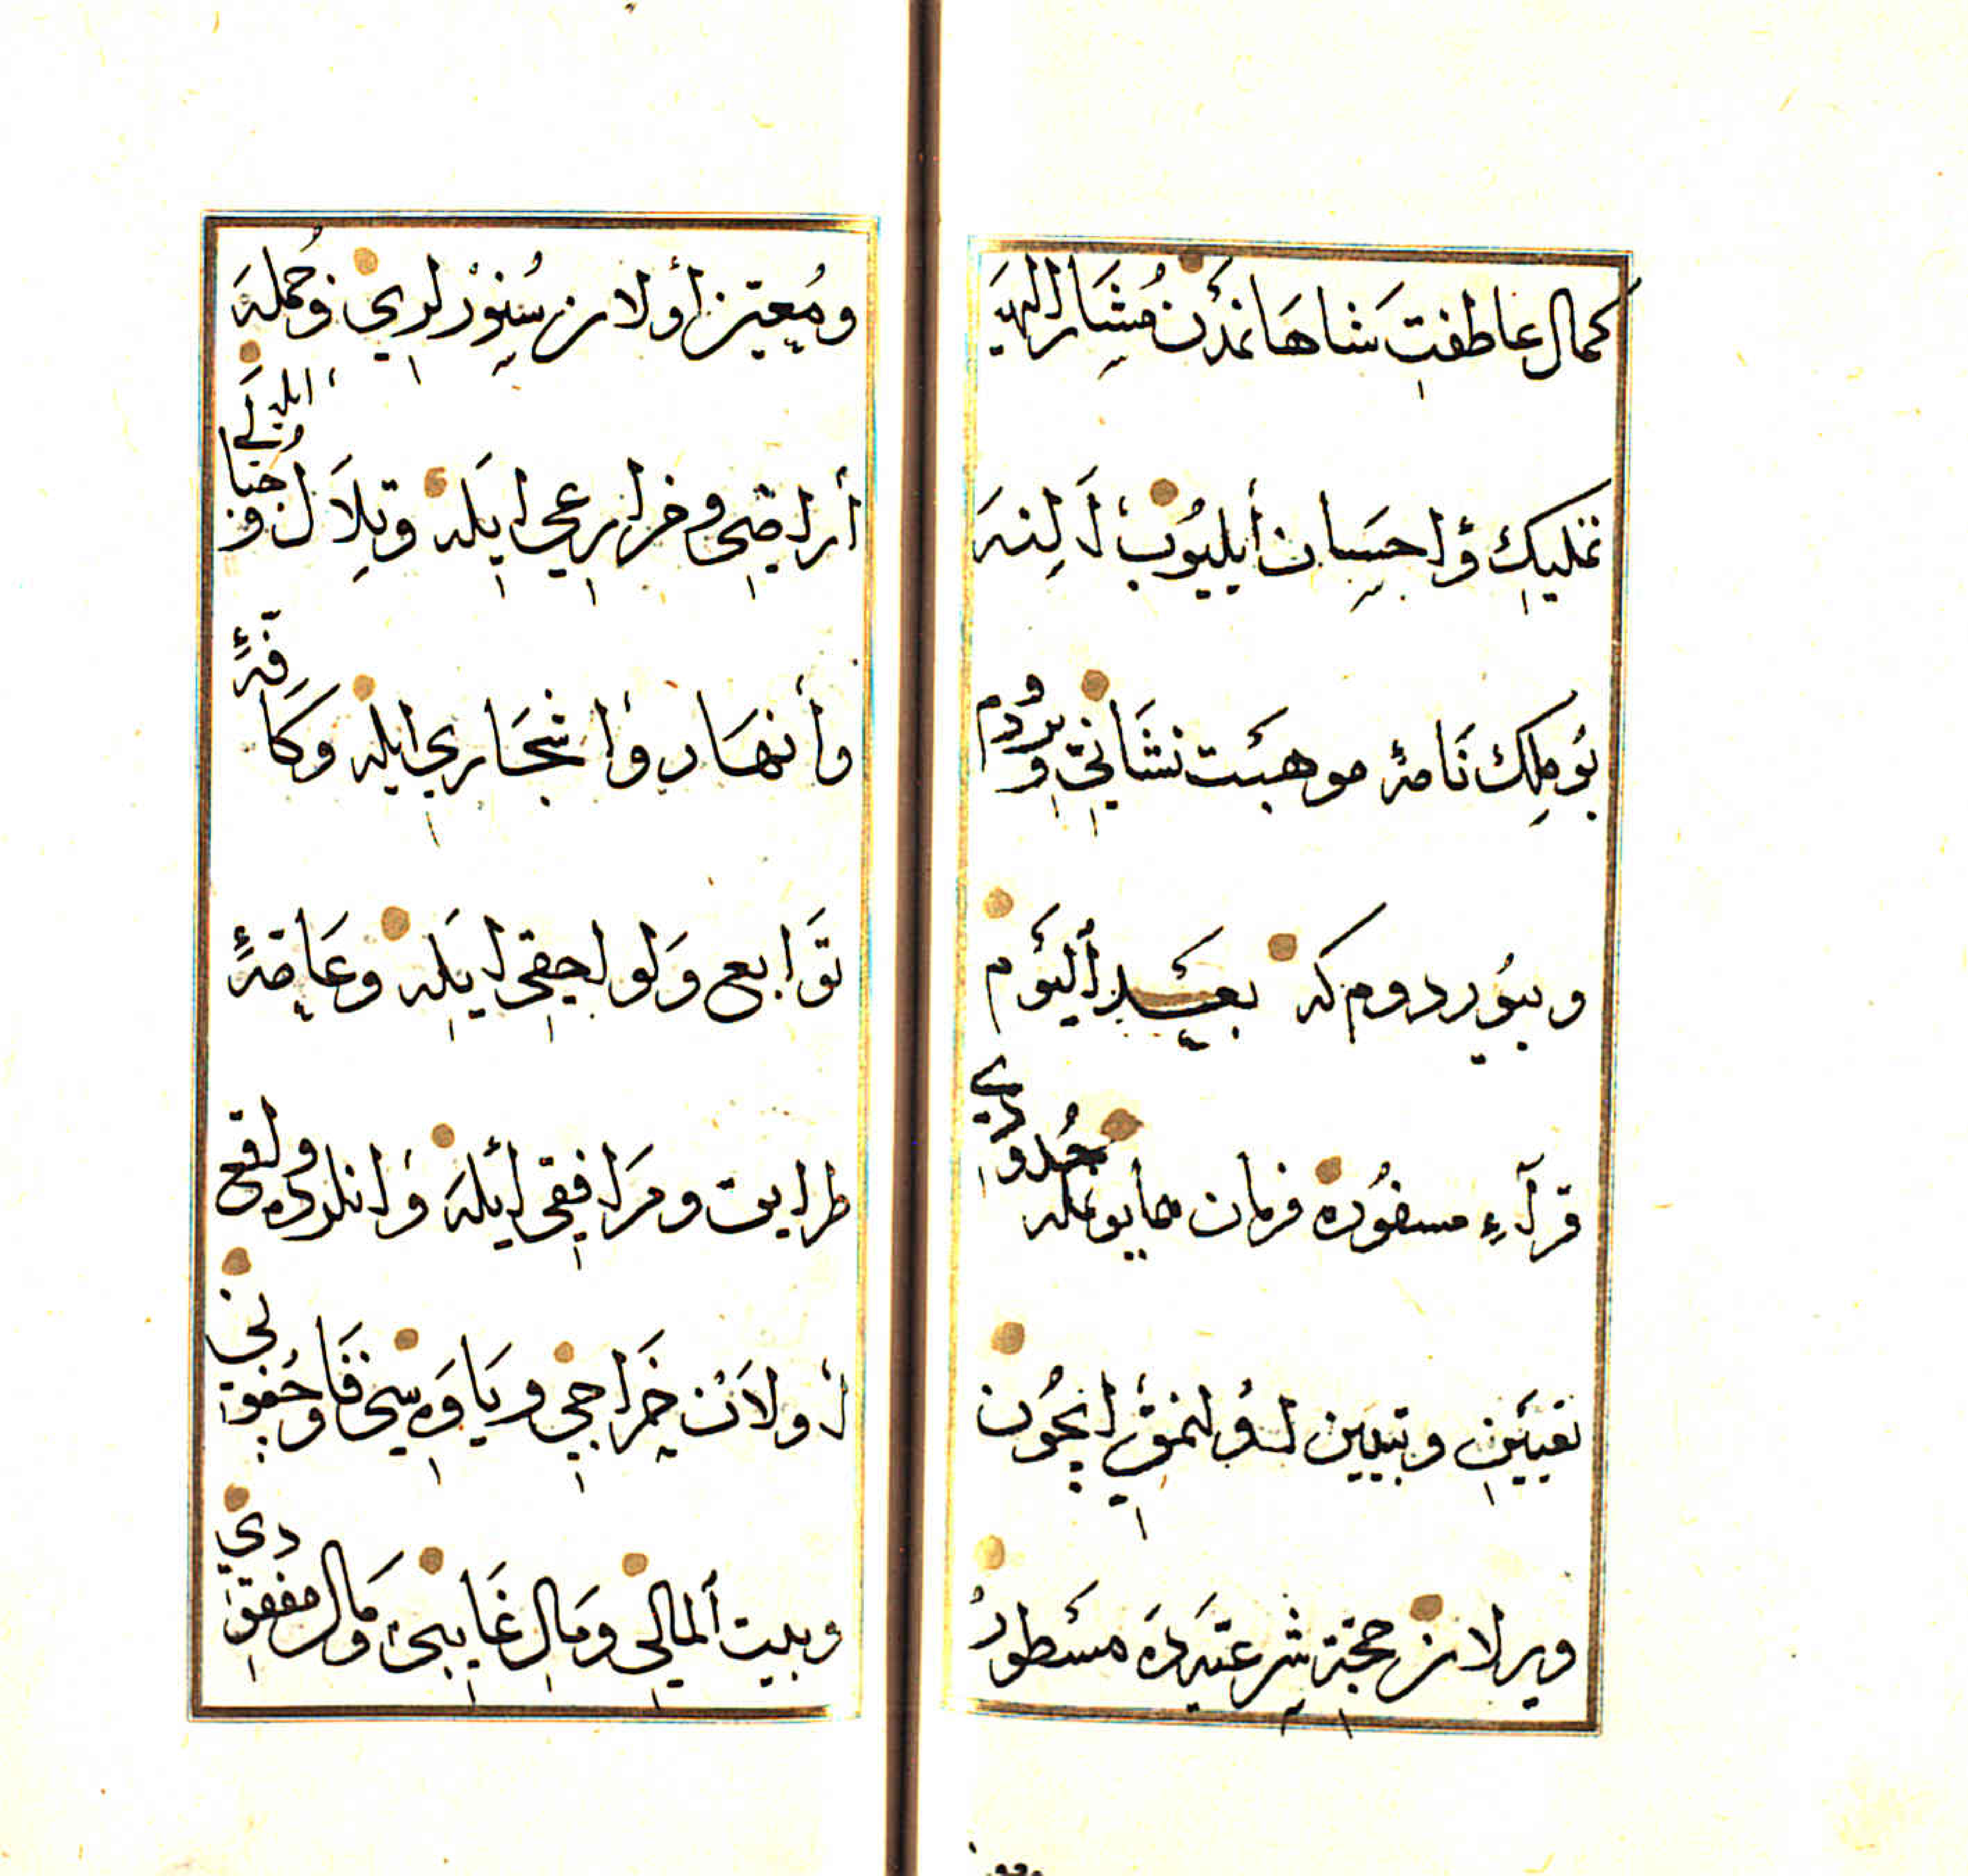 كمال عاطفت شاهانمدن مشار اليه
تمليك و احسان ايليوب الينه
بو ملك نامهٔ موهبت نشانی ويردم
و بيوردوم كه بعد اليوم
قرآء مسفوره فرمان همايونمله حدودی
تعيين و تبيين اولنمق ايچون
ويرلان حجّت شرعيّه ده مسطور
و معيّن اولان سنورلری و جمله
اراضی و مزارعی ايله و تلال و جبالی ايله
و انهار و اشجاری ايله و كافّهٔ
توابع و لواحقی ايله و عامّهٔ
طرايق و مرافقی ايله و انلرده واقع
اولان خراجی و ياوه سی قاچغونی
و بيت المالی و مال غايبی و مال مفقودی